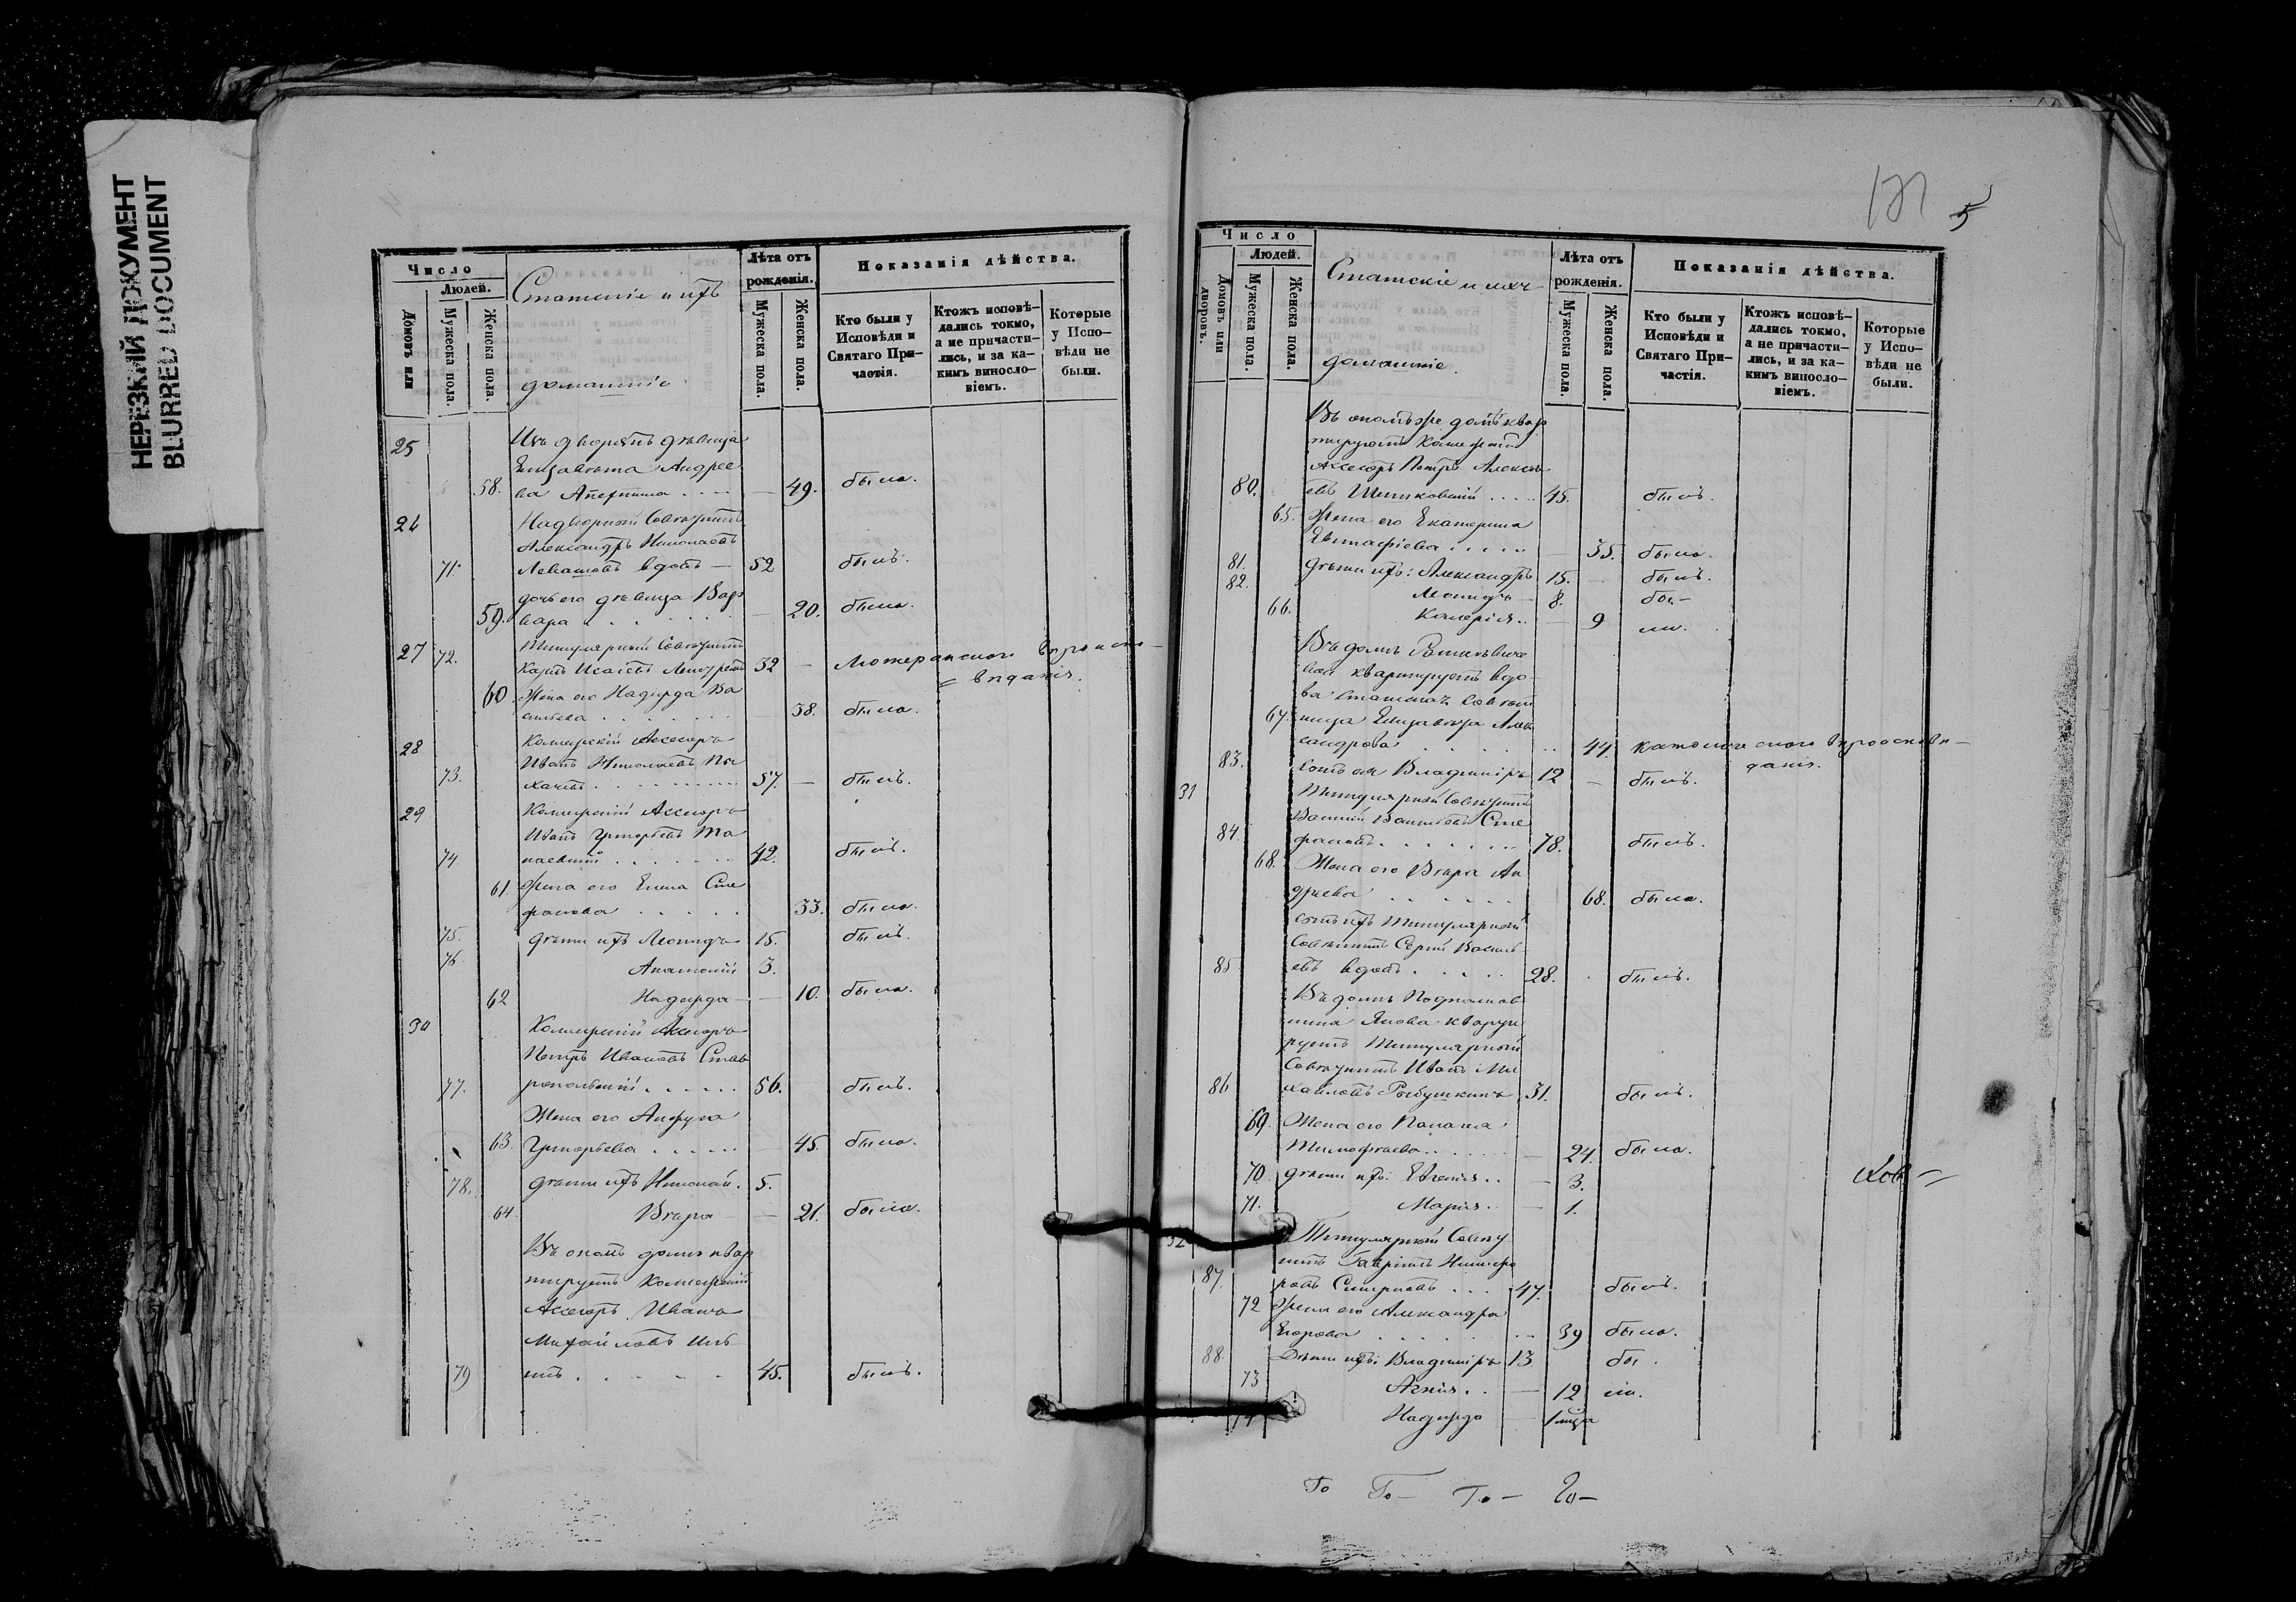 НЕРЕЗКИЙ ДОКУМЕНТ
BLURRED DOCUMENT
Число
Людей.
Домовъ или
Мужеска пола.
Женска пола.
Статскіе и ихъ
домашніе
Лѣта отъ
рожденія.
Мужеска пола.
Женска пола.
Показанія дѣйства.
Кто были у
Исповѣди и
Святаго При-
частія.
Ктожъ исповѣ-
дались токмо,
а не причасти-
лись, и за ка-
кимъ виносло-
віемъ.
Которые
у Испо-
вѣди не
были.
25 Изъ дворянъ дѣвица
Елизавета Андрее
58. ва 49. была.
26 Надворный Совѣтникъ
Александръ Николаевъ
71. Левашовъ вдовъ — 52 былъ.
дочь его дѣвица Вар
59. вара 20. была.
27 72. Титулярный Совѣтникъ
Карлъ 32 — Лютеранскаго вѣроиспо-
вѣданія.
60 Жена его Надежда Ва
сильева 38. была.
28 Коллежскій Ассесоръ
Иванъ Николаевъ
73. 57. — былъ.
29 Коллежскій Ассесоръ
Иванъ Григорьевъ
74 42. былъ.
61. Жена его Елена Сте
фанова 33. была.
75. дѣти ихъ Леонидъ 15. былъ.
76. Анатолій 3.
62 Надежда — 10. была.
30 Коллежскій Ассесоръ
Петръ Ивановъ Став
77. ропольскій 56. былъ.
Жена его Анфуса
63. Григорьева 45. была.
78. дѣти ихъ Николай. 5.
64. Вѣра — 21. была.
Въ ономъ домѣ квар
тируетъ Коллежскій
Ассесоръ Иванъ
Михайловъ Иль
79 инъ 45. былъ.
5
Число
Людей.
Домовъ или
дворовъ.
Мужеска пола.
Женска пола.
Статскіе и ихъ
домашніе.
Лѣта отъ
рожденія.
Мужеска пола.
Женска пола.
Показанія дѣйства.
Кто были у
Исповѣди и
Святаго При-
частія.
Ктожъ исповѣ-
дались токмо,
а не причасти-
лись, и за ка-
кимъ виносло-
віемъ.
Которые
у Испо-
вѣди не
были.
Въ ономъ же домѣ квар
тируютъ Коллежскій
Ассесоръ Петръ Алексѣ
80. евъ 45. былъ.
65. Жена его Екатерина
Евстафіева 35. была.
81. дѣти ихъ: Александръ 15. — былъ.
82. Леонидъ 8. бы-
66. Валерія.. — 9 ли.
Въ домѣ
вой квартируетъ вдо
ва Статская Совѣт
67. ница Елизавета Алек
сандрова 44. Католическаго вѣроисповѣ-
данія.
83. Сынъ ея Владиміръ 12 — былъ.
31 Титулярный Совѣтникъ
Василій Васильевъ Сте
84. фановъ 78. былъ.
68. Жена его Вѣра Ан
дреева 68. была.
Сынъ ихъ Титулярный
Совѣтникъ Сергій Василь
85 евъ вдовъ 28. былъ.
Въ домѣ Подполков
ника Янова кварти
руетъ Титулярный
Совѣтникъ Иванъ Ми
86 хайловъ Рябушкинъ 31. былъ.
69. Жена его
Тимофѣева 24. была.
70. дѣти ихъ: Евгенія.. — 3.
71. Марія.. — 1.
32 Титулярный Совѣт
никъ Гавріилъ Никифо
87. ровъ Смирновъ ... 47. былъ.
72 Жена его Александра
Егорова 39 была.
88. Дѣти ихъ: Владиміръ 13 бы
73 Агнія.. — 12 ли.
74 Надежда —